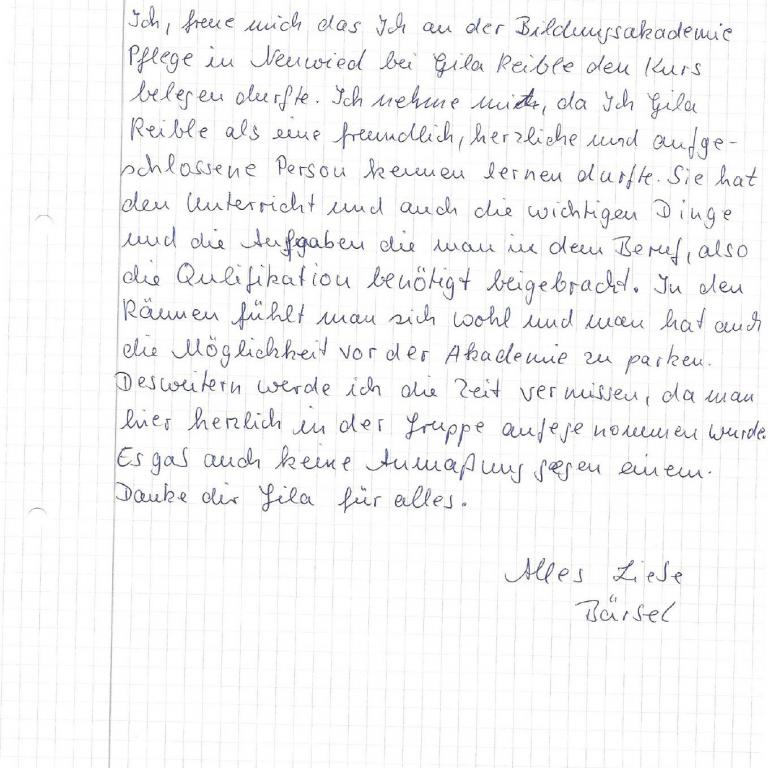 Ich, freue mich das Ich an der Bildungsakademie
Pflege in Neuwied bei Gila Reible den Kurs
belegen durfte. Ich nehme mit, da Ich Gila
Reible als eine freundlich, herzliche und aufge-
schlossene Person kennen lernen durfte. Sie hat
den Unterricht und auch die wichtigen Dinge
und die Aufgaben die man in dem Beruf, also
die Qulifikation benötigt beigebracht. In den
Räumen fühlt man sich wohl und man hat auch
die Möglichkeit vor der Akademie zu parken.
Desweitern werde ich die Zeit vermissen, da man
hier herzlich in der Gruppe aufgenommen wurde.
Es gab auch keine Anmaßung gegen einem.
Danke dir Gila für alles.
Alles Liebe
Bärbel